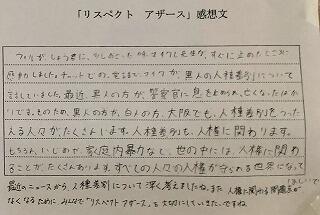 「リスペクト アザース」感想文
フリが、しょうきに、
すぐに止めたところに
感動しました。チャットでの、
マイクが、黒人の人種差別について
話していました。最近、黒人の方が、警察官に息を止められ、亡くなったばか
りです。そのため、黒人の方が、白人の方、大阪でも、人種差別をうった
える人々がたくさんいます。人種差別も、人権に関わります。
もちろん、いじめや、家庭内暴力など、世の中には、人権に関わる
ことが、たくさんあります。すべての人々の人権が守られる世界になって
ほしいです
最近のニュースから人種差別について深く考えましたね。また人権に関わる問題点が
なくなるために、みんなで「リスペクト アザース」を大切にしていきたいですね